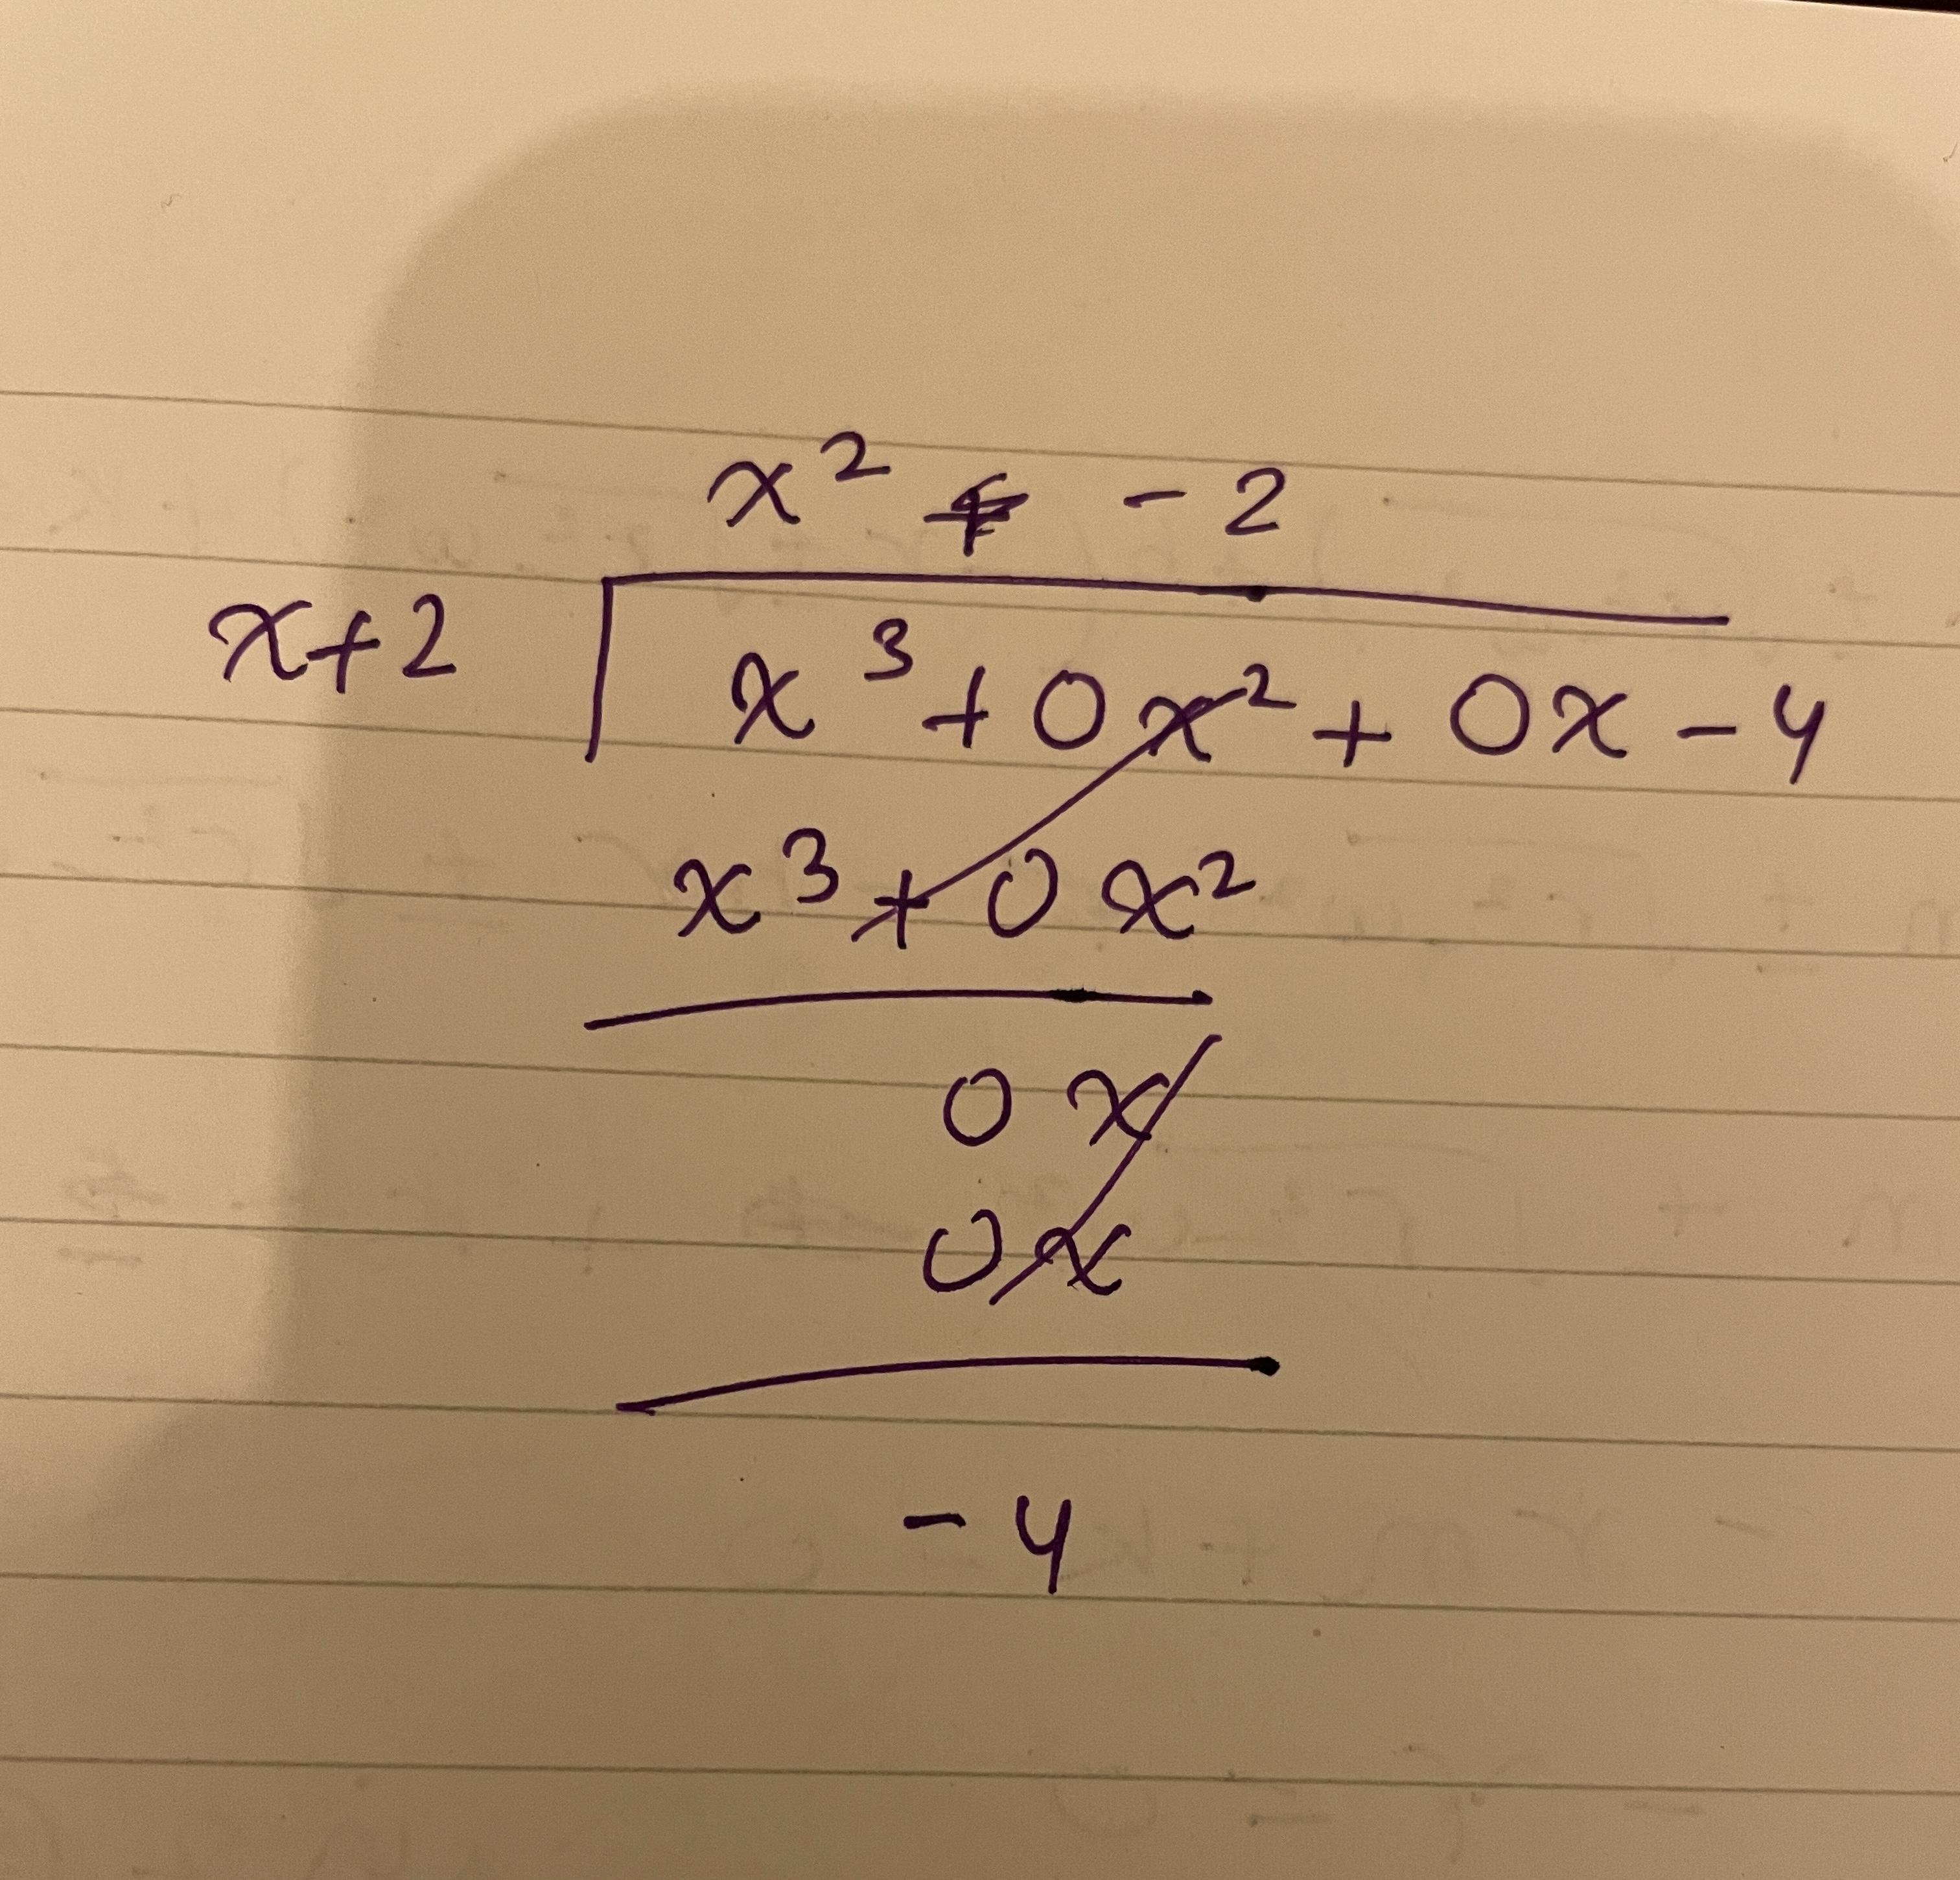 x² + - 2
x+2 x³ + 0x² + 0x - 4
x³ + 0x²
0x
0x
- 4